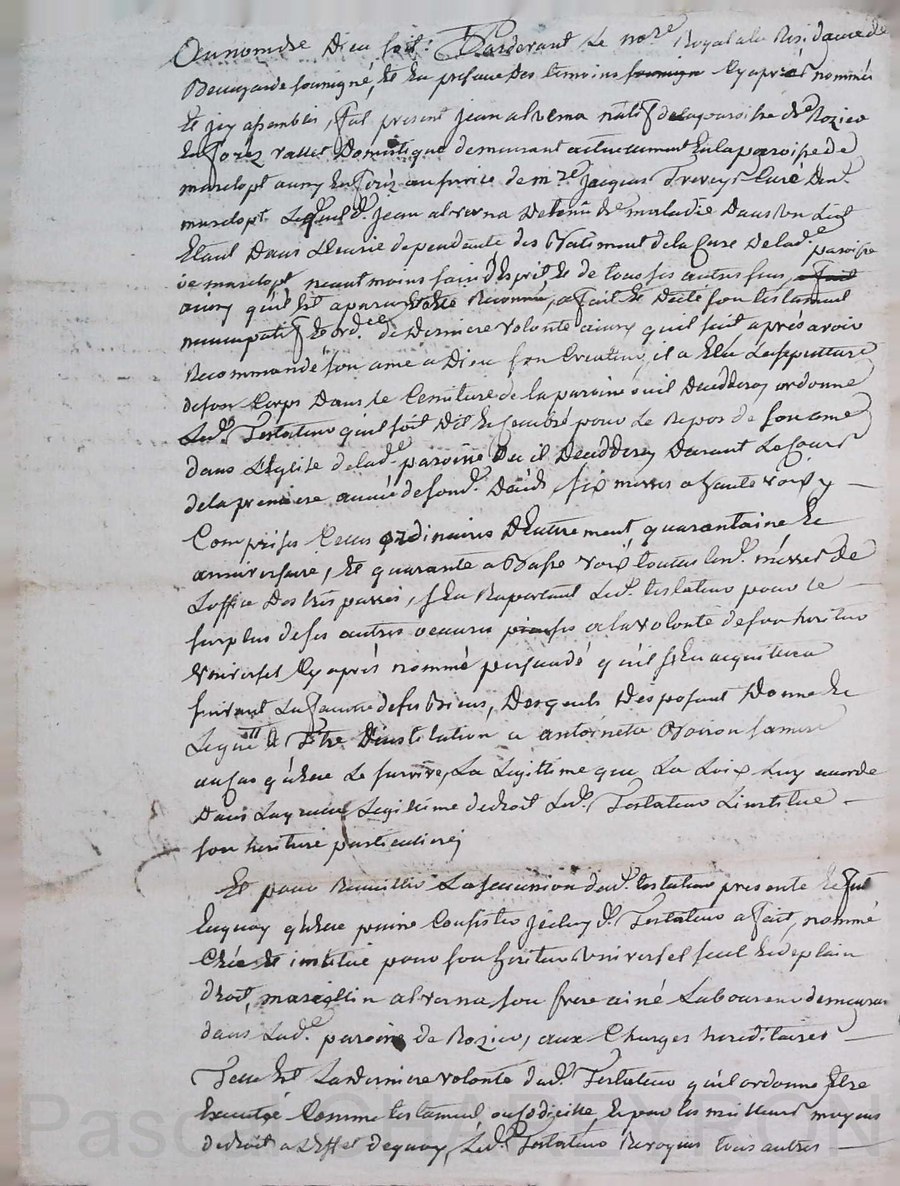 Au nom de Dieu soit. Pardevant Le no.re Royal a la Residance de
Beauregard soussigné, Et En presence des temoins soussign Cy apres nommés
Et jcy assemblés, fut present jean alverna natif de la paroisse de Rozier
En forez vallet Domestique demeurant actuellement En la paroisse de
marclopt aussy En forez au service de m.re jacques Curé dud.
marclopt Lequel d. jean alverna Detenu de maladie Dans un Lict
Etant Dans Lecurie dependante des Batiment de la Cure De lad.e paroisse
de marclopt neantmoins sain d'Esprit Et de tous ses autres sens, fait
ainsy qu'il Est aparu Et Reconnu, a fait Et Dicté son testament
nuncupatif Et ord.ce de Derniere volonté ainsy qu'il suit apres avoir
Recommandé son ame a Dieu son Createur, il a Elu La sepulture
de son Corps Dans le Cemitiere de la paroisse ou il Deceddera, ordonne
Led. Testateur qu'il soit Dit Et Celebré pour Le Repos de son ame
dans L'Eglise de lad.e paroisse Ou il Deceddera Durant Le Cours
de la premiere année de sond. Décés, six messes a haute voix y
Comprises Celles ordinaires D'Enterrement, quarantaine Et
anniversaire, Et quarante a Basse voix toutes lesd. messes de
L'office Des trépassés, s'En Raportant Led. testateur pour le
surplus de ses autres oeuvres pieuses a la volonté de son heritier
universel Cy après nommé persuadé qu'il s'En acquittera
suivant La de ses Biens, Desquels Desposant Donne Et
Legue a Titre D'institution a antoinette sa mere
au cas qu'Elle Le survive, La Legitime que La Loix Luy accorde
Dans Laquelle Legitime de droit Led. Testateur L'institue
son heritiere particuliere,
Et pour Recueillir La succession dud. testateur presente Et fut
En quoy qu'Elle puisse Consister jceluy d. Testateur a fait, nommé
Créé Et institué pour son heritier universel seul Et de plain
droit, alverna son frere ainé Laboureur demeurant
dans Lad.e paroisse de Rozier, aux Charges hereditaires
Telle Est La derniere volonté dud. Testateur qu'il ordonne Etre
Executée Comme testament ou Codicille, Et pour les meilleurs moyens
de droit a L'effet de quoy, Led. Testateur Revoque tous autres
Pascal CHAMBEYRON